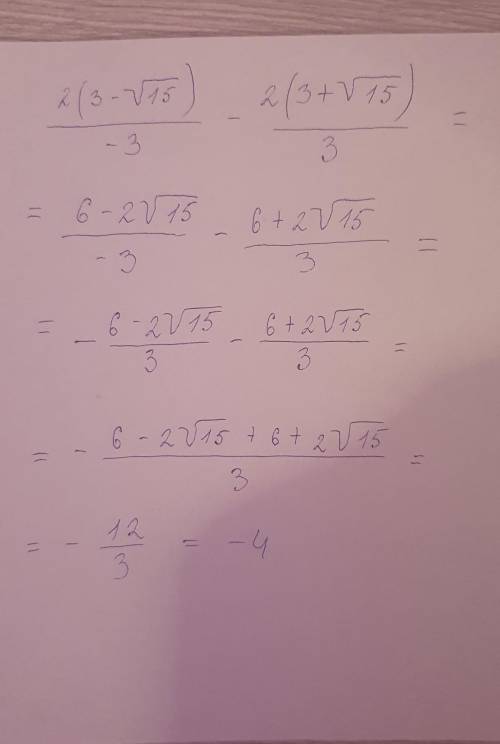 2(3-√15)/-3 - 2(3+√15)/3 =
= 6-2√15/-3 - 6+2√15/3 =
= - 6-2√15/3 - 6+2√15/3 =
= - 6-2√15+6+2√15/3 =
= - 12/3 = -4